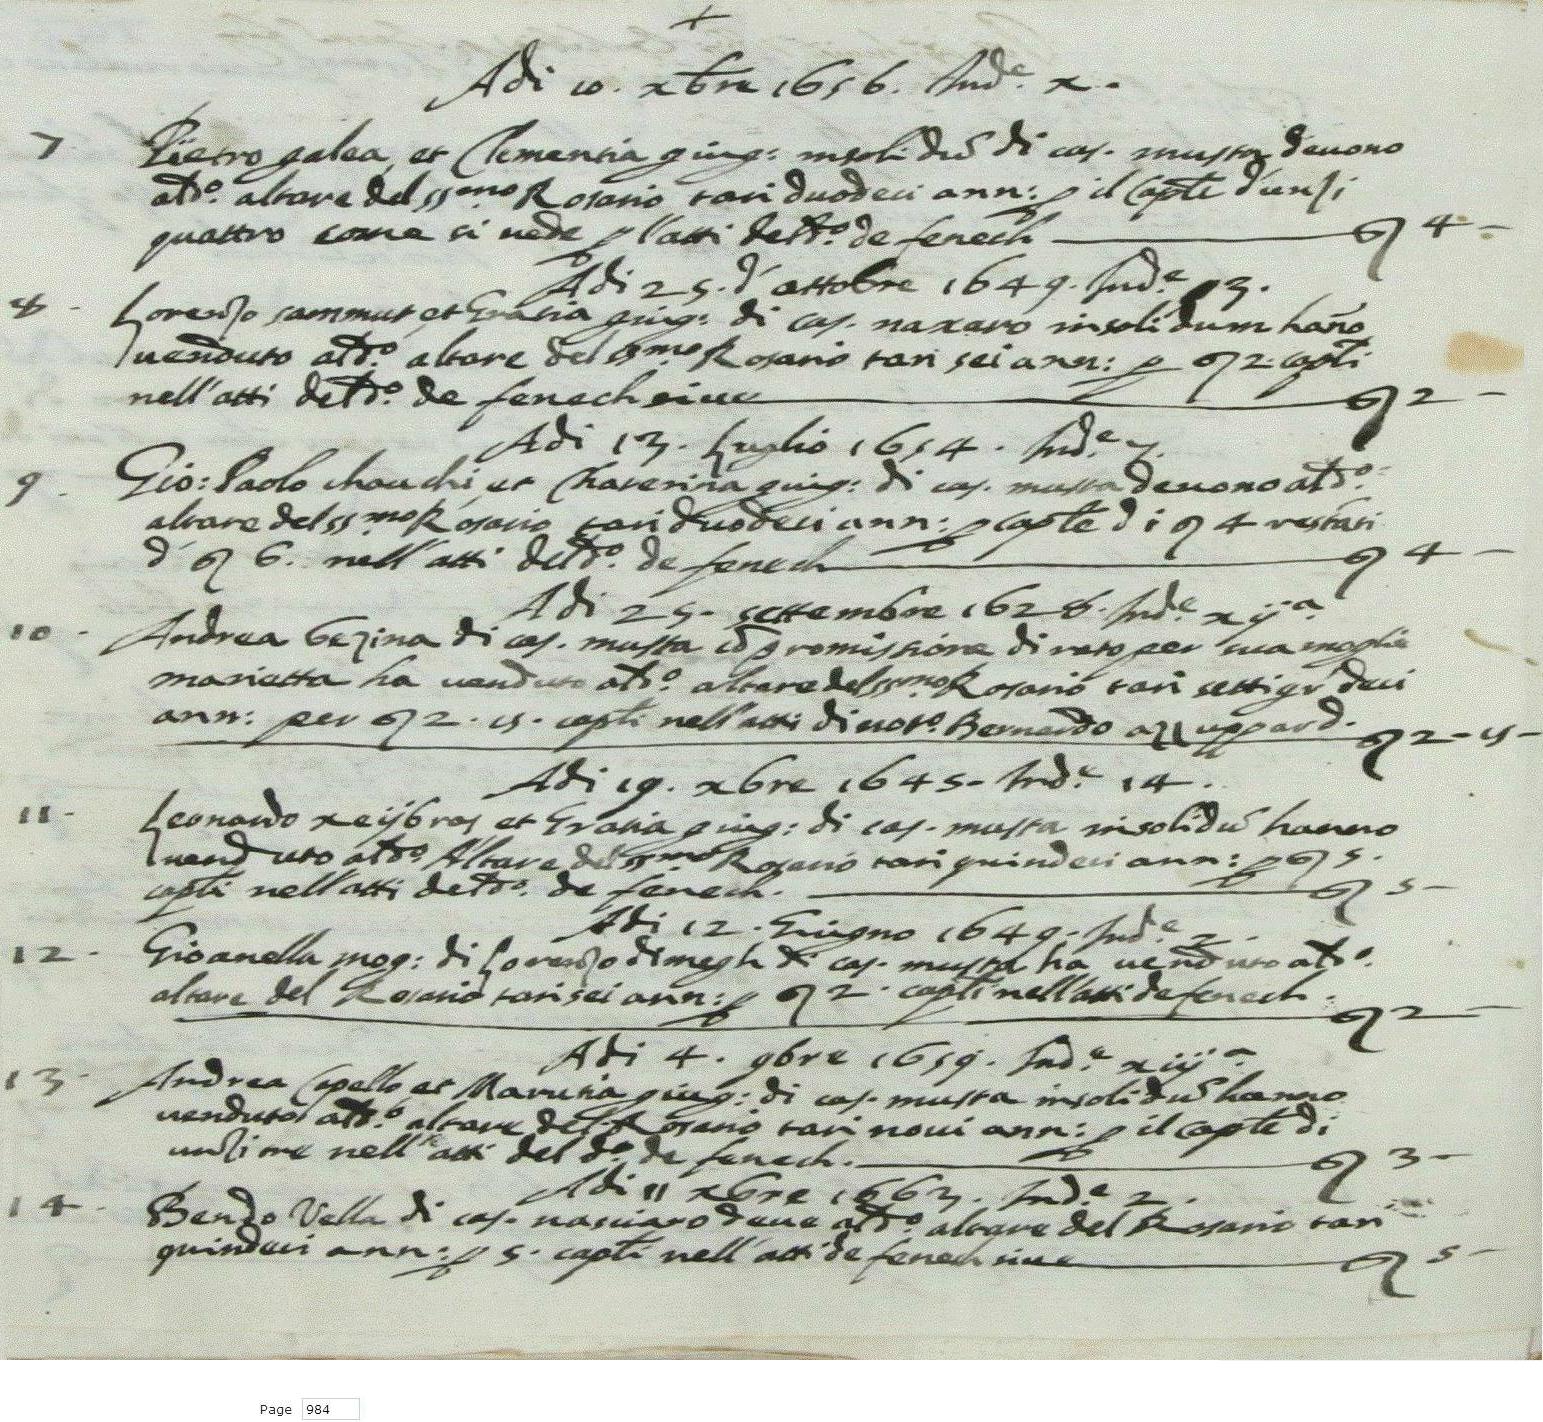 +
Adi 10. xbre 1656. Ind.e x.
7 Pietro galea, et Clementia giug: insolidũ di cas. musta deuono
atd.o altare del ss.mo Rosario tari duodeci ann: p il Caple d'unzi
quattro come si uede p l'atti deltd.o de fenech 4 -
Adi 25. d'ottobre 1649. Ind.e 3.
8 - Lorenzo sammut et Gratia giug: di cas. naxaro insolidum hano
uenduto atd.o altare del ss.mo Rosario tari sei ann: p 2 capli
nell'atti detd.o de fenech siue 2 -
Adi 13. Luglio 1654. Ind.e 7.
9 . Gio: Paolo chauchi et Chaterina giug: di cas. musta deuono atd.o
altare del ss.mo Rosario tari duodeci ann: p caple di 4 restati
d' 6. nell'atti deltd.o de fenech 4 -
Adi 25. settembre 1628. Ind.e xij.a
10 - Andrea Bezina di cas. musta cõ promissione di rato per sua moglie
marietta ha uenduto atd.o altare del ss.mo Rosario tari setti gr deci
ann: per 2. 15. capli nell'atti di not.o Bernardo azzuppard. 2 - 15 -
Adi 19. xbre 1645. Ind.e 14.
11 - Leonardo xeijbras et Gratia giug: di cas. musta insolidũ hanno
uenduto atd.o Altare del ss.mo Rosario tari quindeci ann: p 5.
capli nell'atti detd.o de fenech. 5 -
Adi 12. Giugno 1649. Ind.e 2.
12 - Gioanella mog: di Lorenzo dimegh di cas. musta ha uenduto atd.o
altare del Rosario tari sei ann: p 2. capli nell'atti de fenech. 2 -
Adi 4. 9bre 1659. Ind.e xiij.a
13 - Andrea Capello et Marutia giug: di cas. musta insolidũ hanno
uenduto atd.o altare del Rosario tari noui ann: p il caple di
unzi tre nell'atti del d.o de fenech. 3 -
Adi 11 xbre 1663. Ind.e 2.
14 - Benzo Vella di cas. nasciaro deue atd.o altare del Rosario tari
quindeci ann: p 5. capli nell'atti de fenech siue 5 -
Page 984